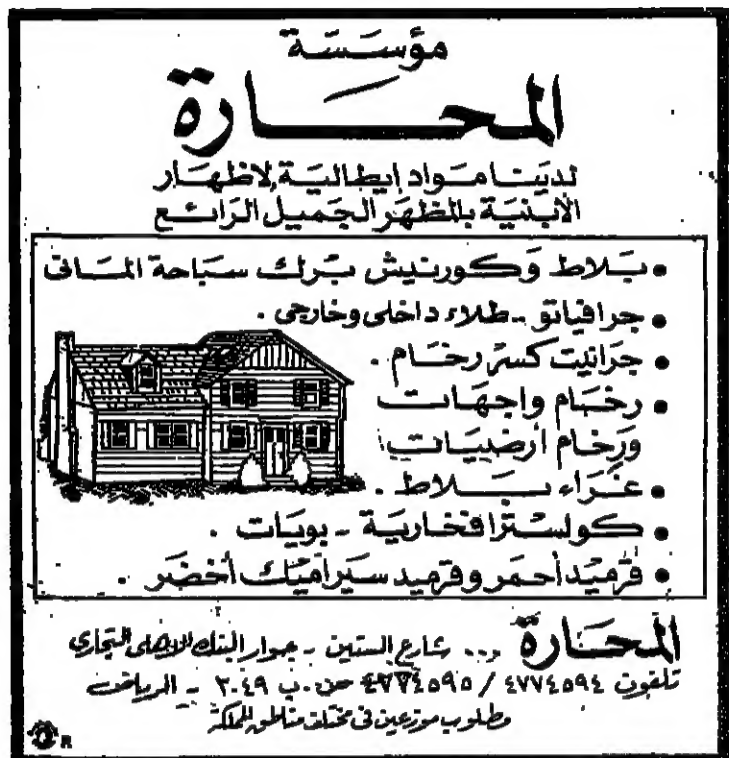 مؤسسة
المحارة
لدينا مواد إيطالية لاظهار
الابنية بالمظهر الجميل الرائع
• بلاط وكورنيش برك سباحة المانى
• جرافياتو - طلاء داخلى وخارجى .
• جرانيت كسر رخام .
• رخام واجهات
ورخام أرضيات
• غراء بلاط .
• كولسترا فخارية - بويات .
• قرميد أحمر وقرميد سيراميك أخضر .
المحارة .. شارع الستين - جوار البنك الاهلى التجارى
تلفون ٤٧٧٤٥٩٤ / ٤٧٧٤٥٩٥ ص . ب ٢٠٤٩ - الرياض
مطلوب موزعين فى مختلف مناطق المملكة
R